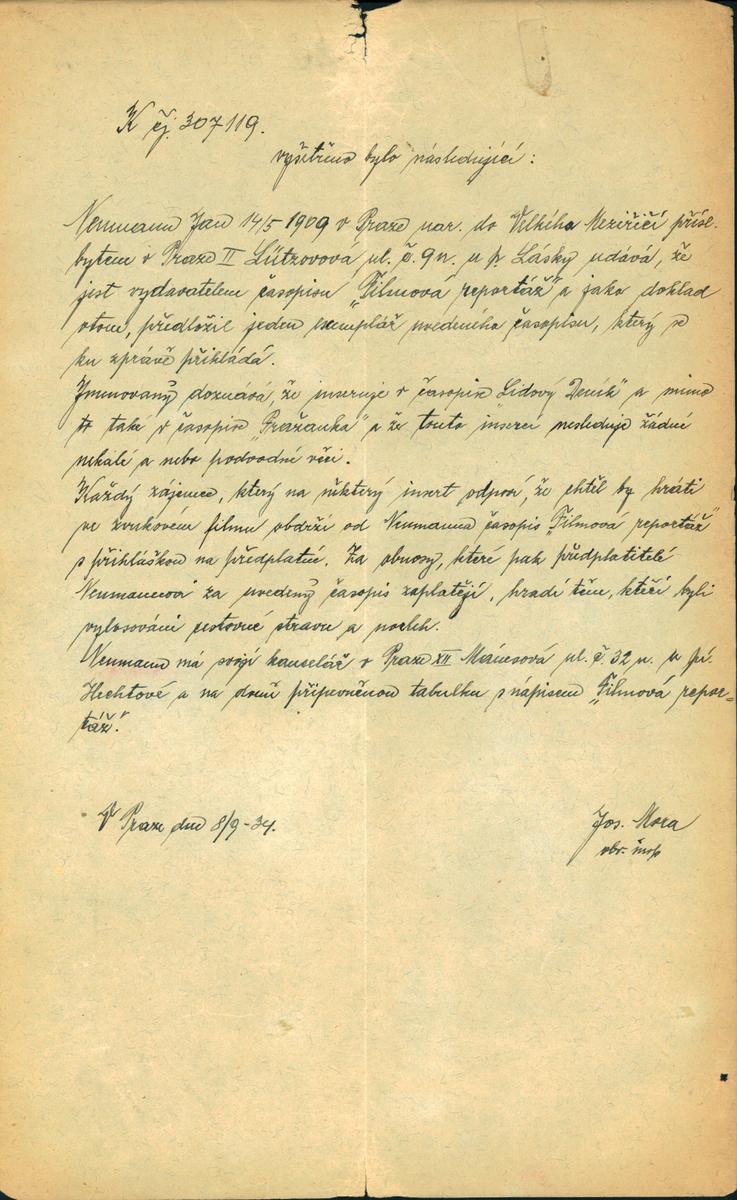 K čj. 307119.
vyšetřeno bylo následující:
Neumann Jan 14/5 1909 v Praze nar. do Velkého Meziříčí přísl.
bytem v Praze II Lützovová ul. č. 9 n. u p. Lásky udává, že
jest vydavatelem časopisu „Filmová reportáž" a jako doklad
otom, předložil jeden exemplář uvedeného časopisu, který se
ku zprávě přikládá.
Jmenovaný doznává, že inseruje v časopise Lidový Deník" a mimo
to také v časopise „Pražanka" a že touto insercí nesleduje žádné
nekalé a nebo podvodné věci.
Každý zájemce, který na některý insert odpoví, že chtěl by hráti
ve zvukovém filmu obdrží od Neumanna časopis „Filmová reportáž"
s přihláškou na předplatné. Za obnosy, které pak předplatitelé
Neumannovi za uvedený časopis zaplatějí, hradí těm, kteří byli
vylosováni cestovné stravu a nocleh.
Neumann má svojí kancelář v Praze XII Mánesová ul. č. 32 n. u pí.
Hechtové a na domě připevněnou tabulku s nápisem „Filmová repor=
táž."
V Praze dne 8/9-34.
Jos. Mora
obv. insp